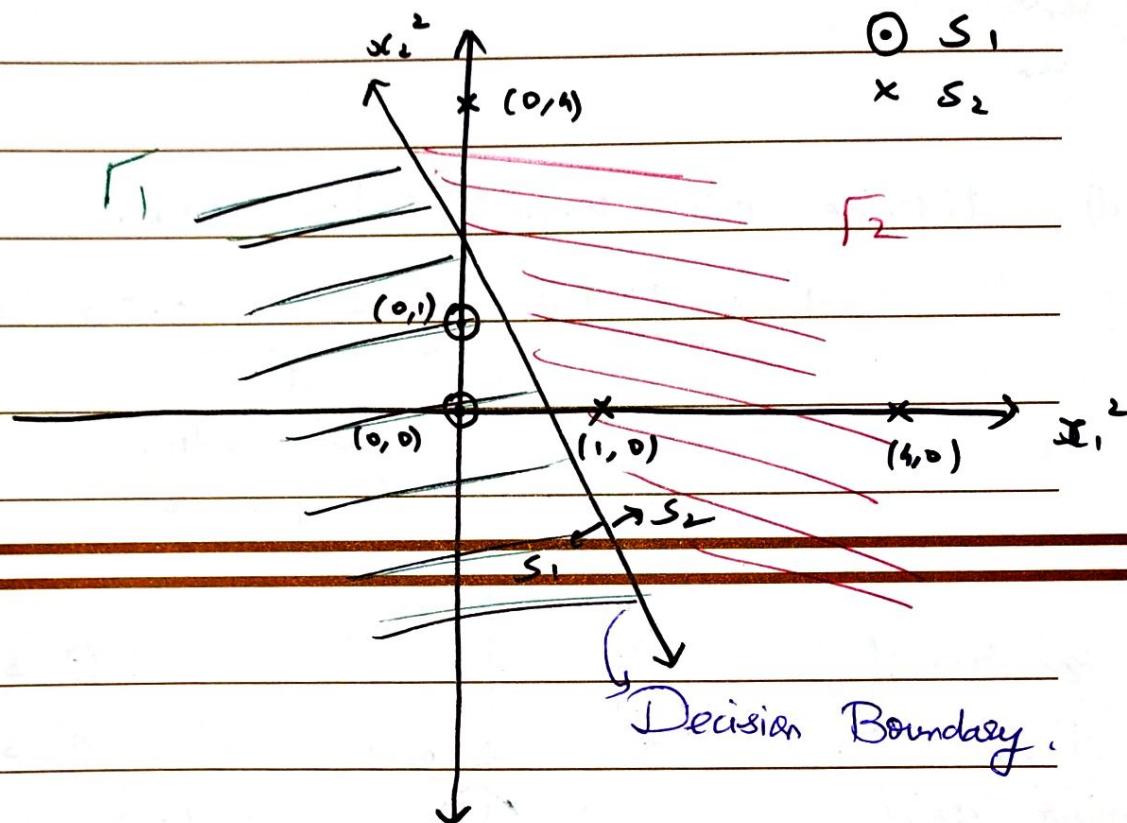 S1
x₂²
x S2
(0,4)
Γ1
Γ2
(0,1)
(0,0)
(1,0)
(4,0)
x₁²
S2
S1
Decision Boundary.